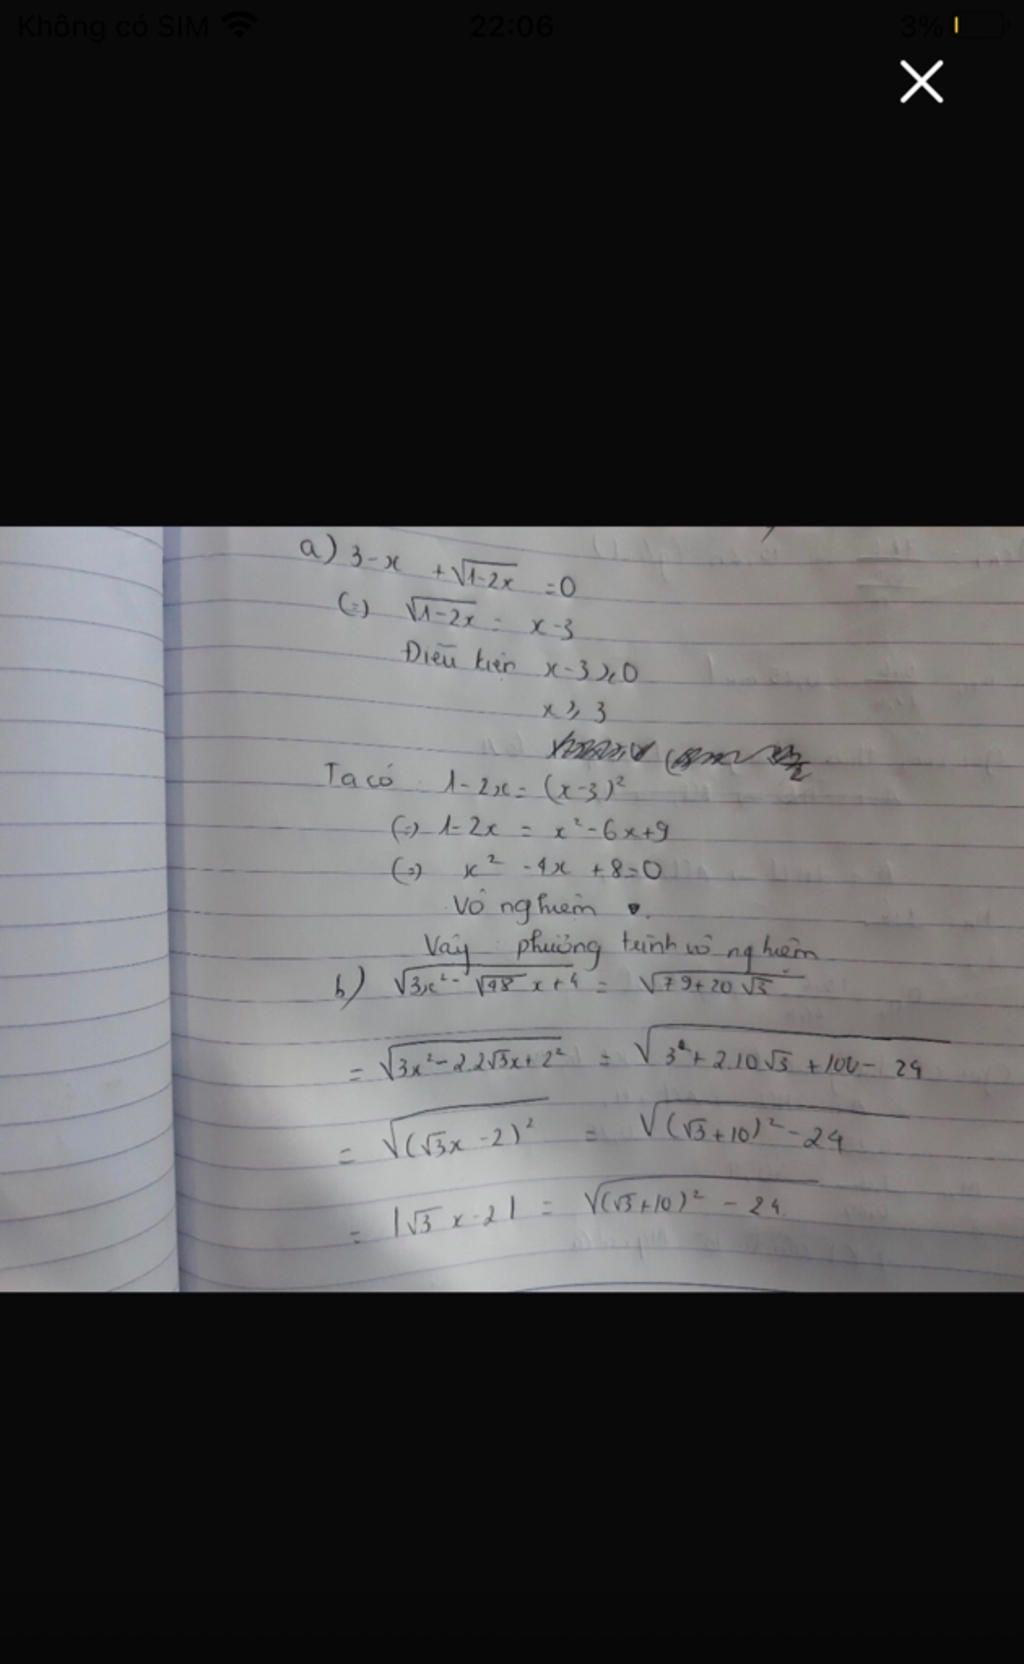 Không có SIM 22:06 3%
a) 3-x + √1-2x = 0
(=) √1-2x = x-3
Điều kiện x-3 ⩾ 0
x ⩾ 3
Ta có : 1-2x = (x-3)²
(=) 1-2x = x²-6x+9
(=) x² -4x +8=0
Vô nghiệm
Vậy phương trình vô nghiệm
b) √3x²-√48 x+4 = √79+20√3
= √3x²-2.2√3x+2² = √3²+2.10√3+100-24
= √(√3x-2)² = √(√3+10)²-24
= |√3 x-2| = √(√3+10)² - 24